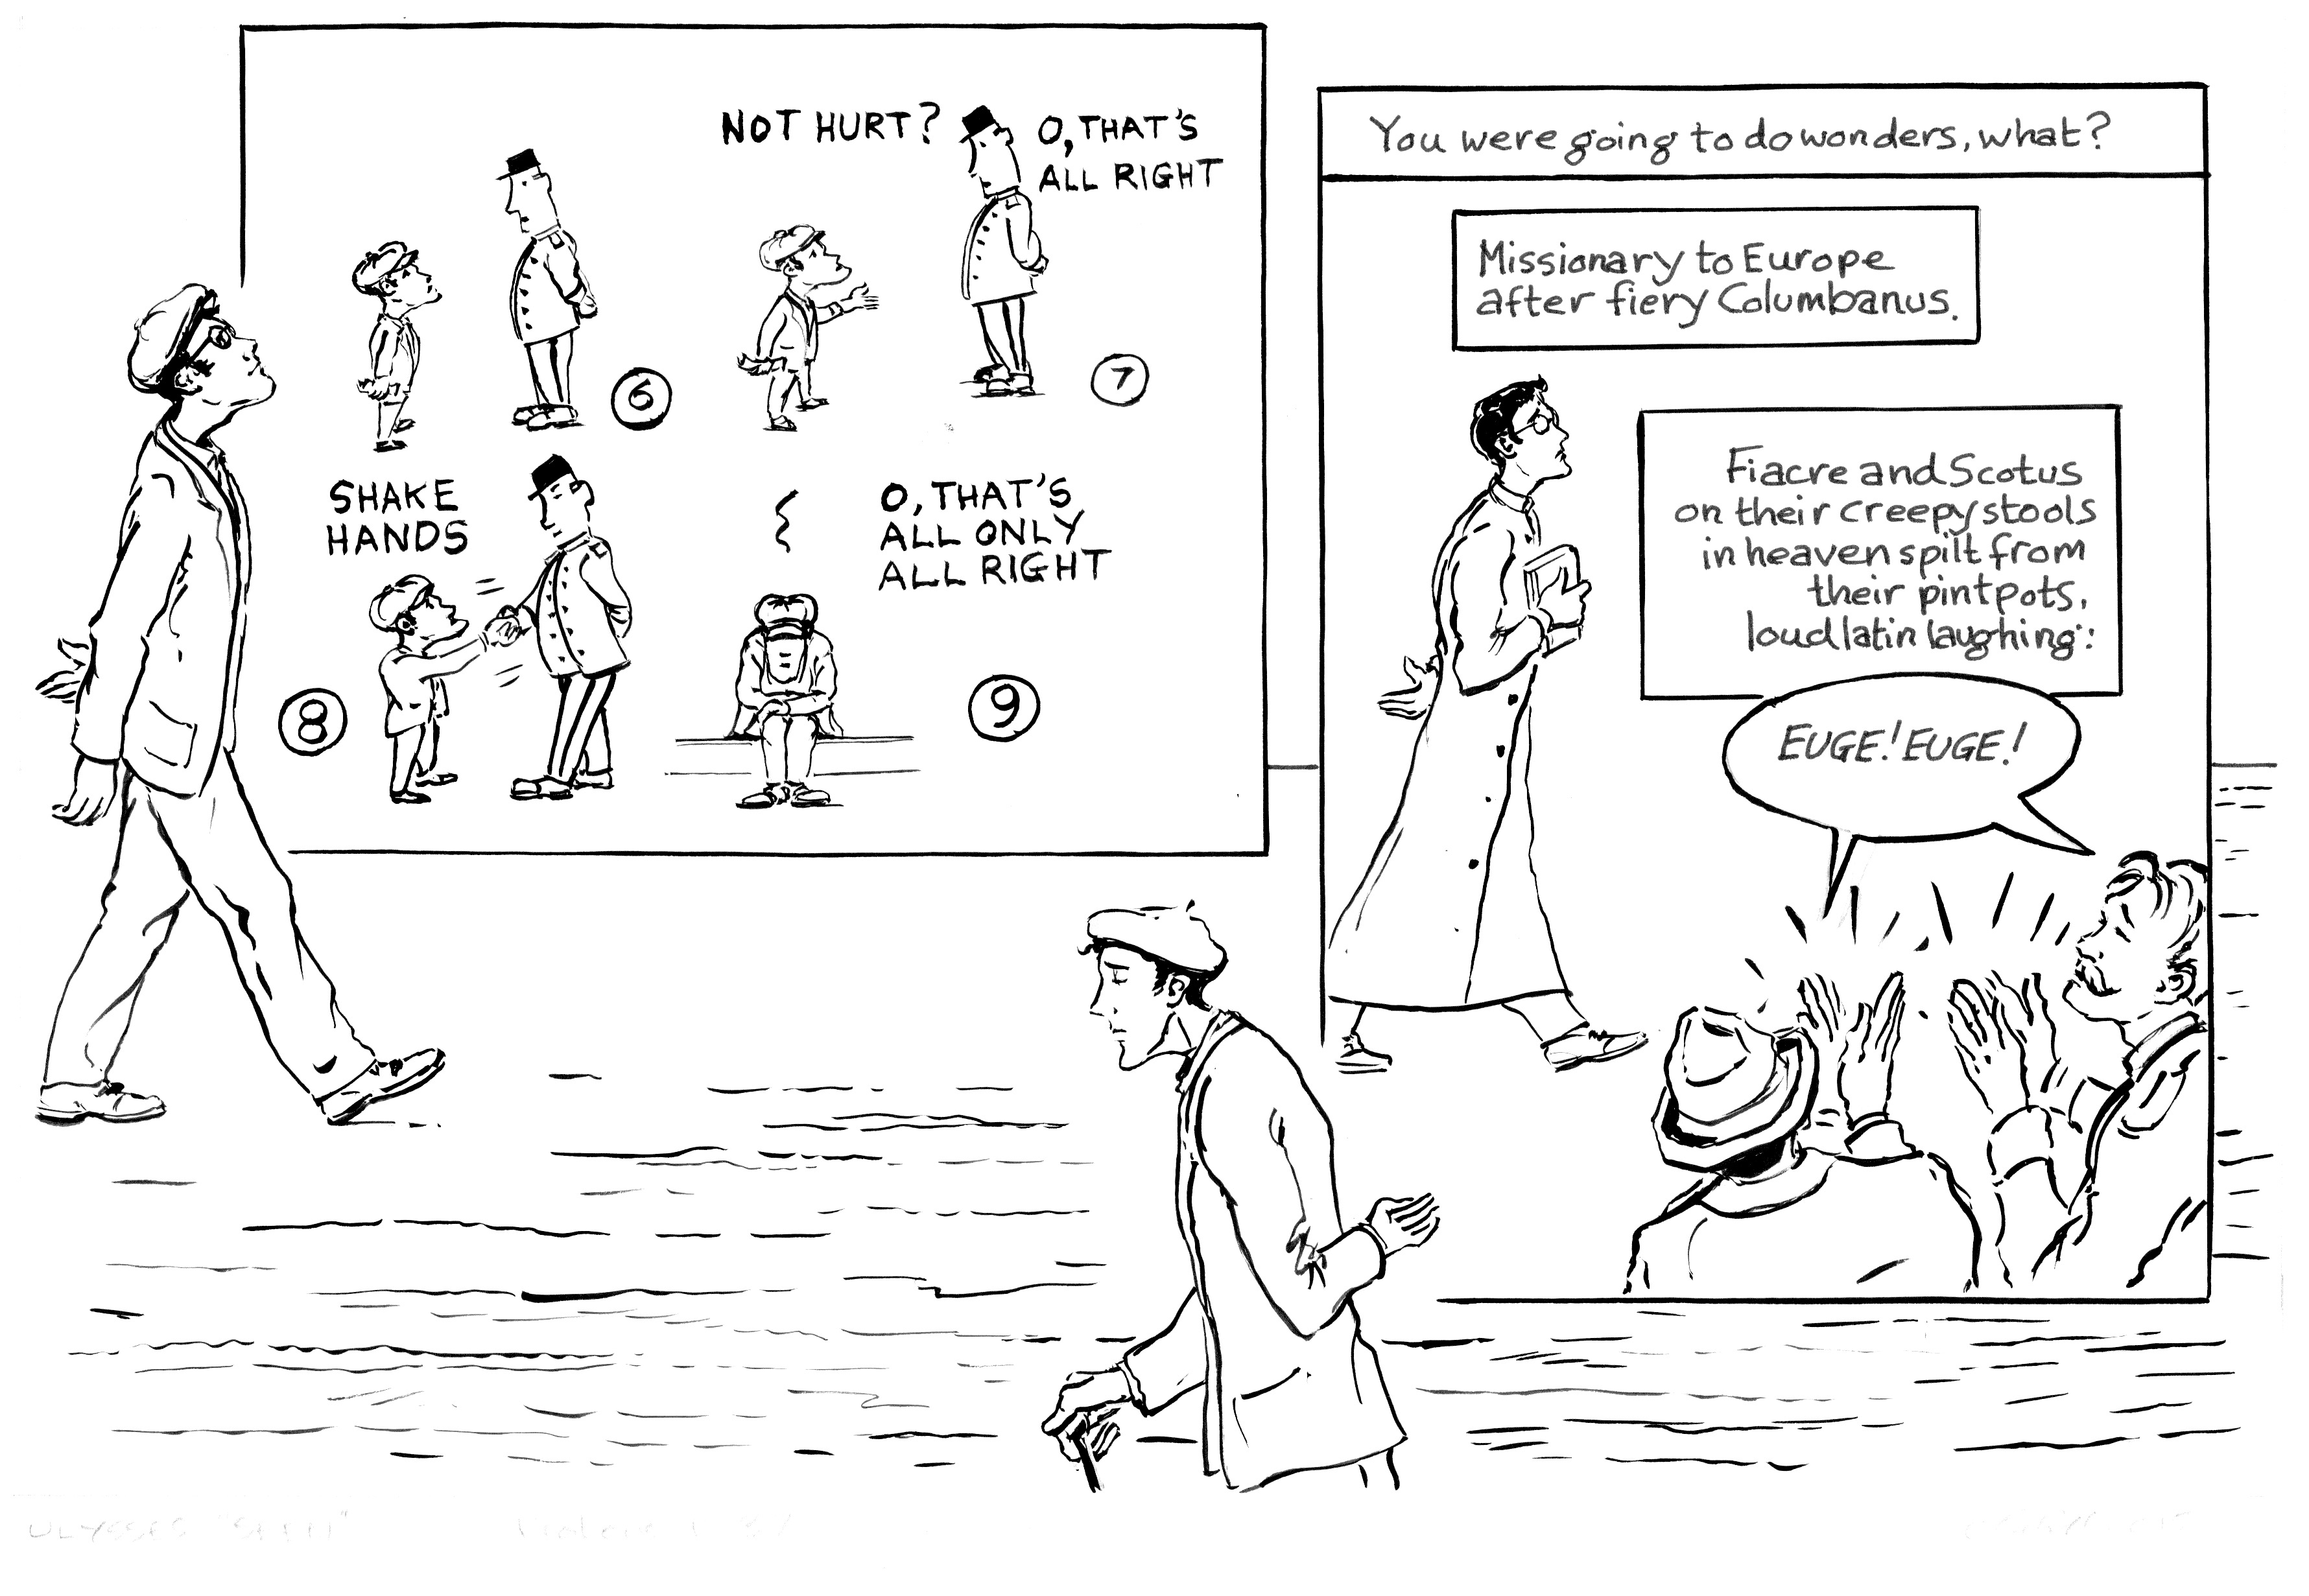 NOT HURT?
O, THAT'S
ALL RIGHT
6
7
SHAKE
HANDS
O, THAT'S
ALL ONLY
ALL RIGHT
8
9
You were going to do wonders, what?
Missionary to Europe
after fiery Columbanus.
Fiacre and Scotus
on their creepystools
in heaven spilt from
their pintpots,
loudlatinlaughing:
EUGE! EUGE!
ULYSSES